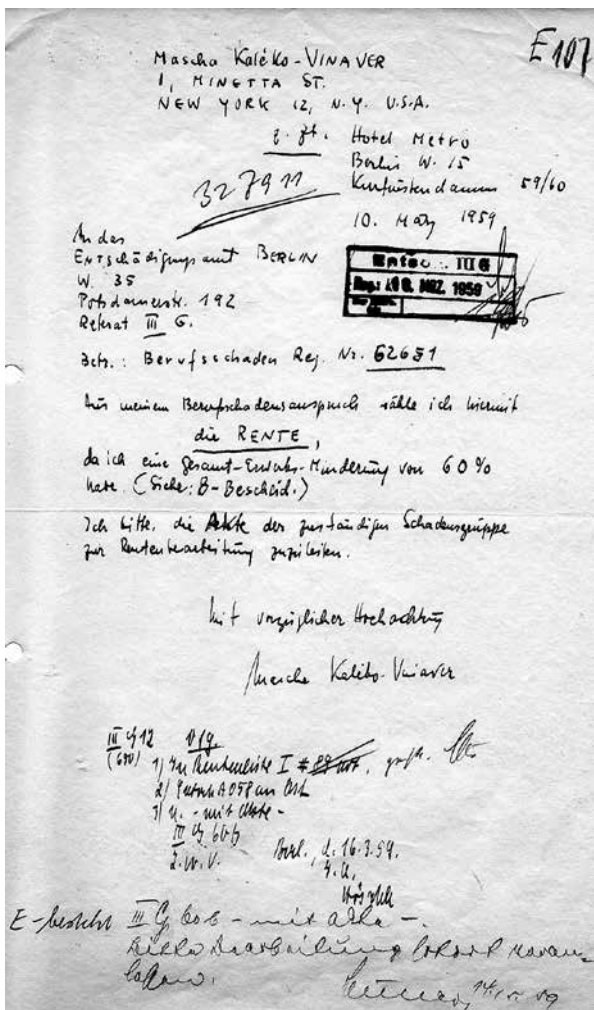 E107
Mascha Kaléko-VINAVER
1, MINETTA ST.
NEW YORK 12, N.Y. U.S.A.
z. Zt. Hotel Metro
Berlin W. 15
Kurfürstendamm 59/60
327911
10. März 1959
An das
ENTSchädigungsamt BERLIN
W. 35
Potsdamerstr. 192
Referat III G.
III G
MRZ. 1959
Betr.: Berufsschaden Reg. Nr. 62651
Aus meinem Berufschadensanspruch wähle ich hiermit
die RENTE,
da ich eine Gesamt-Erwerbs-Minderung von 60%
habe. (Siehe: B-Bescheid.)
Ich bitte, die Akte der zuständigen Schadensgruppe
zur Rentenbearbeitung zuzuleiten.
Mit vorzüglicher Hochachtung
Mascha Kaléko-Vinaver
III G 12 Vfg.
1) Zur Rentenliste I
2)
3) U. - mit Akte -
III G
z.w.V. Berl., d. 16.3.59.
III G 606 - mit Akte -.
59